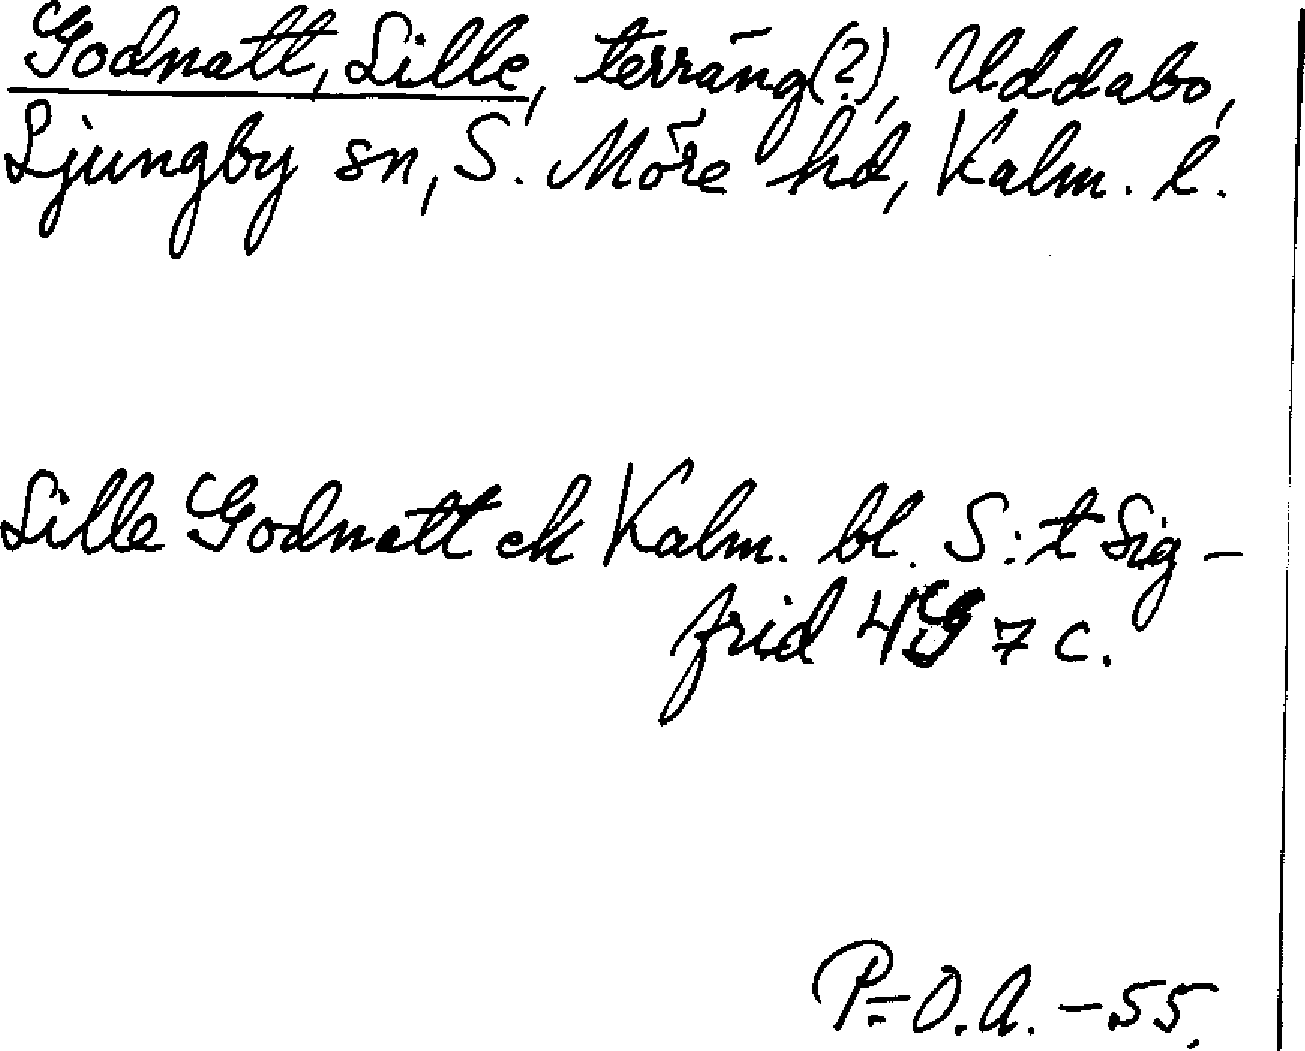 Godnatt, Lille, terräng(?), Uddabo,
Ljungby sn, S. Möre hd, Kalm. l.
Lille Godnatt ek Kalm. bl. S:t Sig-
frid 4G 7 c.
P-O.A. -55.